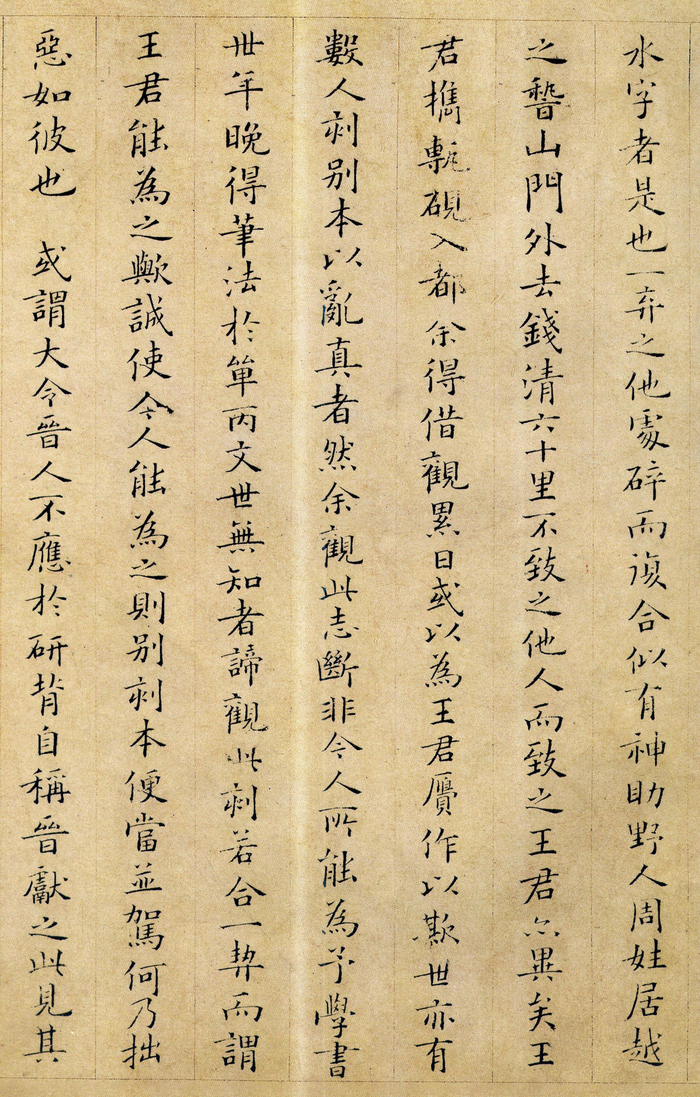 水字者是也一弃之他處碎而復合似有神助野人周姓居越
之稽山門外去錢清六十里不致之他人而致之王君亦異矣王
君攜甎硯入都余得借觀累日或以為王君贋作以欺世亦有
數人刻别本以亂真者然余觀此志斷非今人所能為予學書
卅年晚得筆法於單丙文世無知者諦觀此刻若合一契而謂
王君能為之歟誠使今人能為之則别刻本便當並駕何乃拙
惡如彼也　或謂大令晉人不應於研背自稱晉獻之此見其